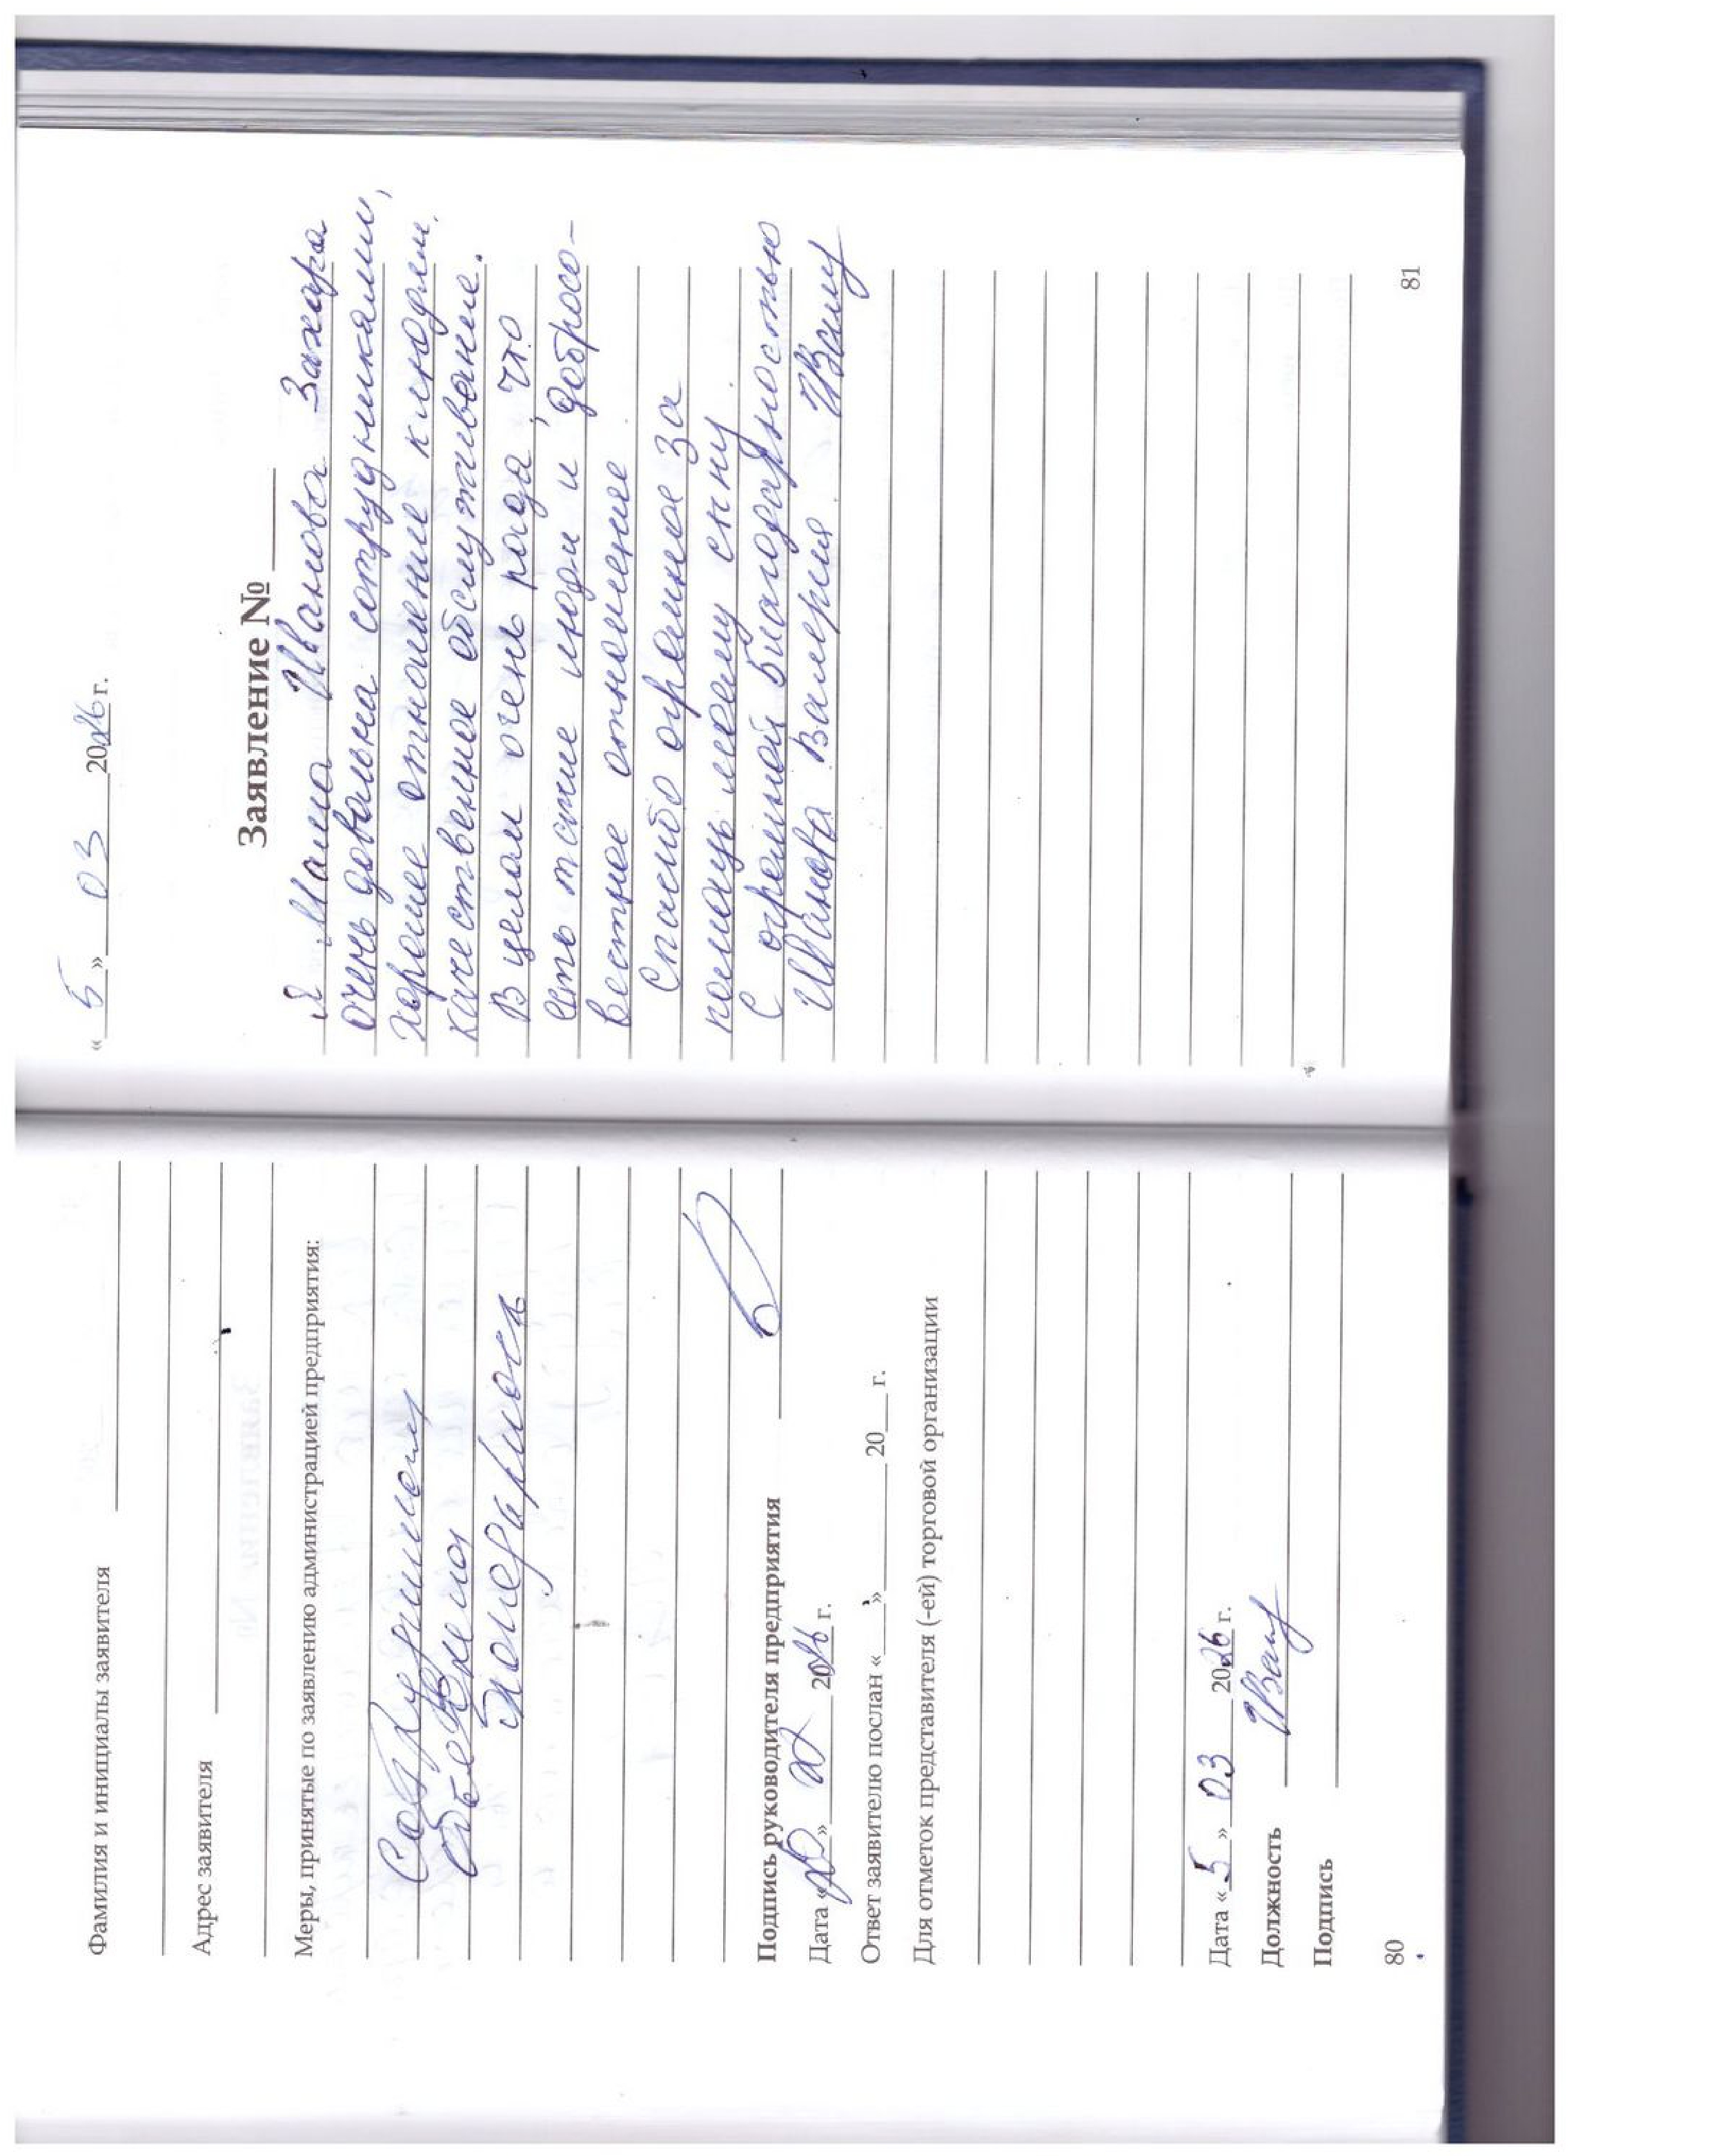 Фамилия и инициалы заявителя
Адрес заявителя
Меры, принятые по заявлению администрацией предприятия:
Сотруднику
объявлена
благодарность
Подпись руководителя предприятия
Дата « » 2026 г.
Ответ заявителю послан «___»________20___г.
Для отметок представителя (-ей) торговой организации
Дата «5» 03 2026 г.
Должность
Подпись
80
«5» 03 2026 г.
Заявление №
Я Мама Иванова Захара
очень довольна сотрудниками,
хорошее отношение к людям,
качественное обслуживание.
В целом очень рада, что
есть такие люди и добросо-
вестное отношение
Спасибо огромное за
помощь моему сыну.
С огромной благодарностью
Иванова Валерия.
81